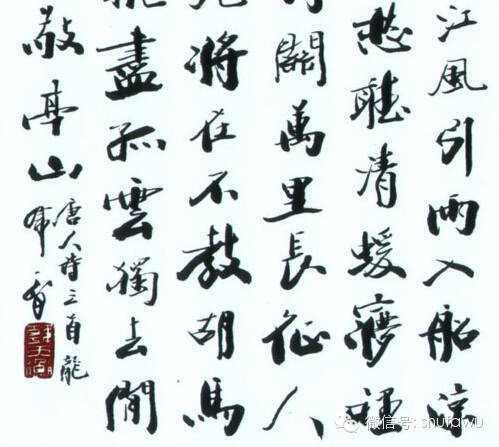 江風引雨入船涼
愁聽清蝯夢裡
關萬里長征人
將在不教胡馬
盡孤雲獨去閒
敬亭山
唐人詩三首龍
微信号: shufawu